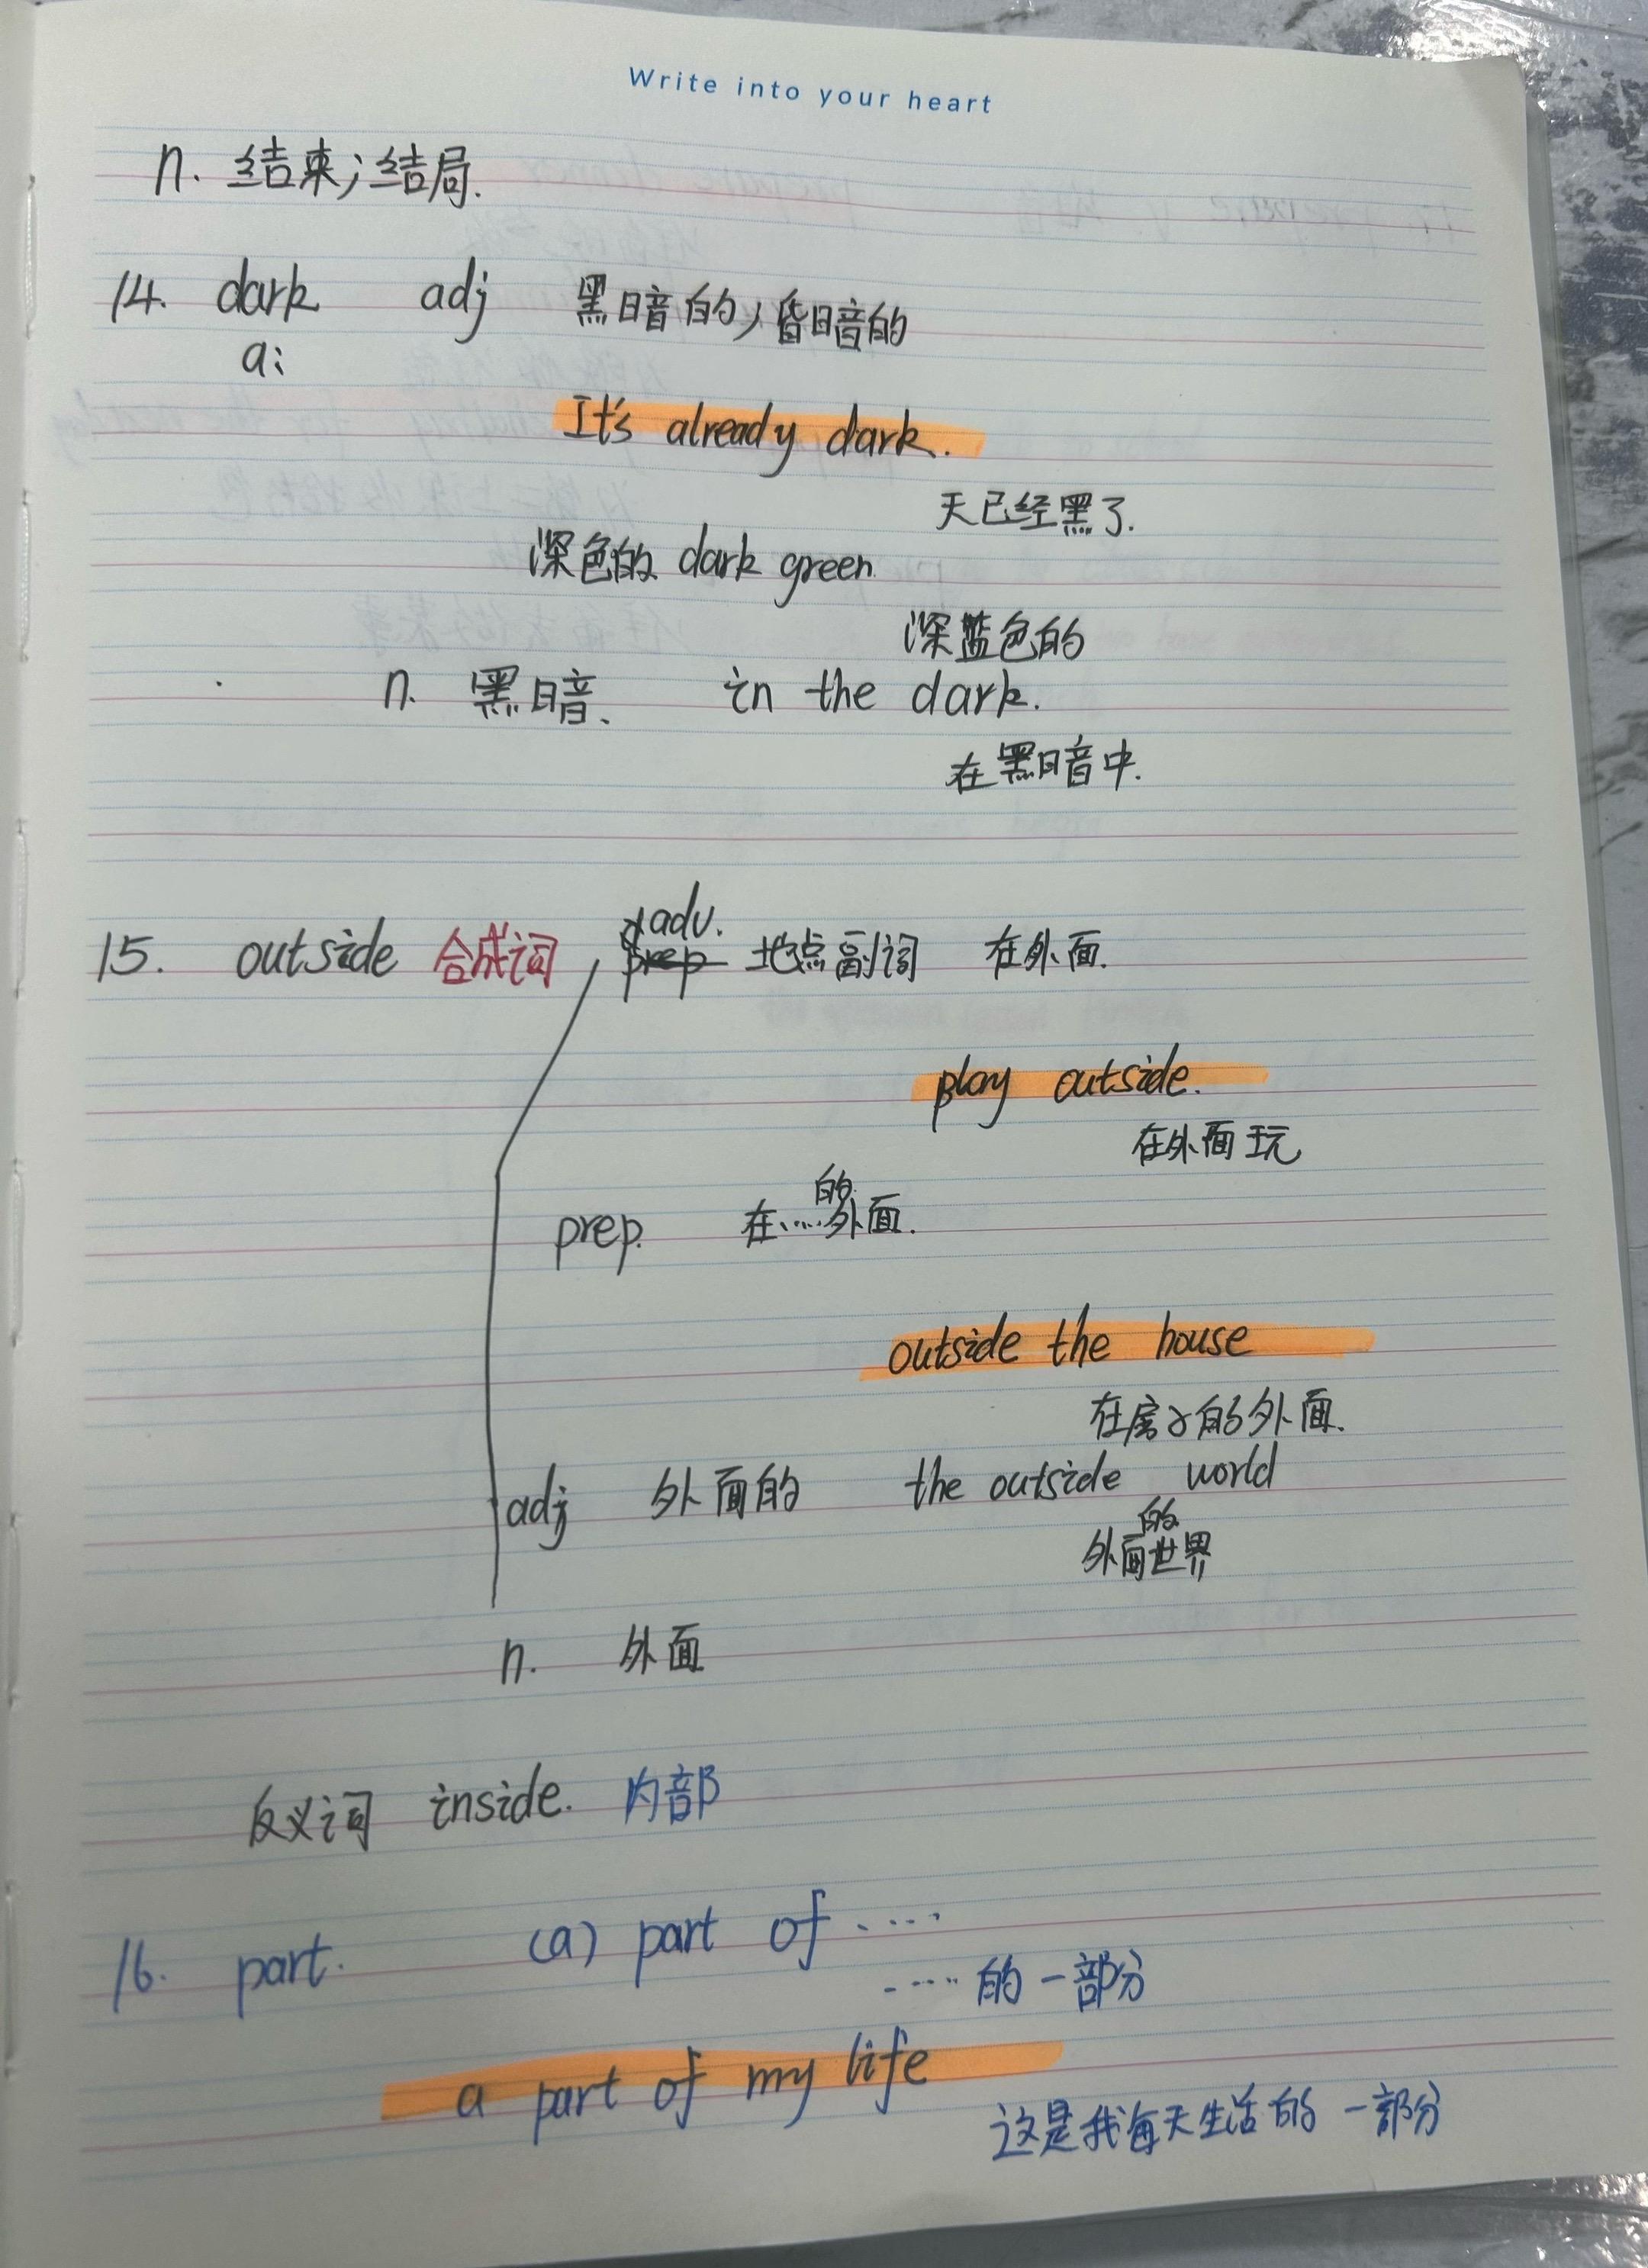 Write into your heart
n. 结束；结局.
14. dark adj 黑暗的，昏暗的
a:
It's already dark.
天已经黑了.
深色的 dark green
深蓝色的
n. 黑暗、 in the dark.
在黑暗中.
adv.
15. outside 合成词 prep 地点副词 在外面.
play outside.
在外面玩
prep. 在……的外面.
outside the house
在房子的外面.
adj 外面的 the outside world
外面的世界
n. 外面
反义词 inside. 内部
16. part. (a) part of ……
……的一部分
a part of my life
这是我每天生活的一部分